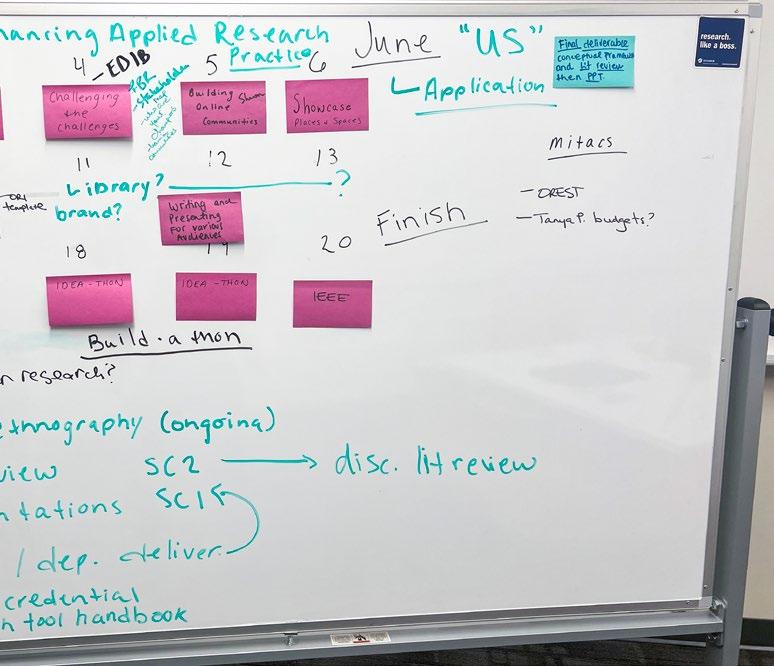 hancing Applied Research
Practice
June "US"
Application
Final deliverable
conceptual framework
and lit review
then PPT.
research.
like a boss.
4 - EDIB
5
6
Stakeholder
Challenging
the
Challenges
Building
Online
Communities
Showcase
Places & Spaces
11
12
13
Library? ?
brand?
ORI
template
Writing and
Presenting
For Various
Audiences
Finish
Mitacs
- OREST
- Tanya P. budgets?
18
19
20
IDEA-THON
IDEA-THON
IEEE
Build-a-thon
n research?
ethnography (ongoing)
view SC2 → disc. lit review
ntations SC1
/ dep. deliver.
credential
n tool handbook